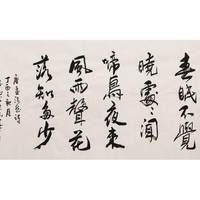 春眠不覺
曉處〻聞
啼鳥夜来
風雨聲花
落知多少
唐孟浩然詩
丁酉之秋月